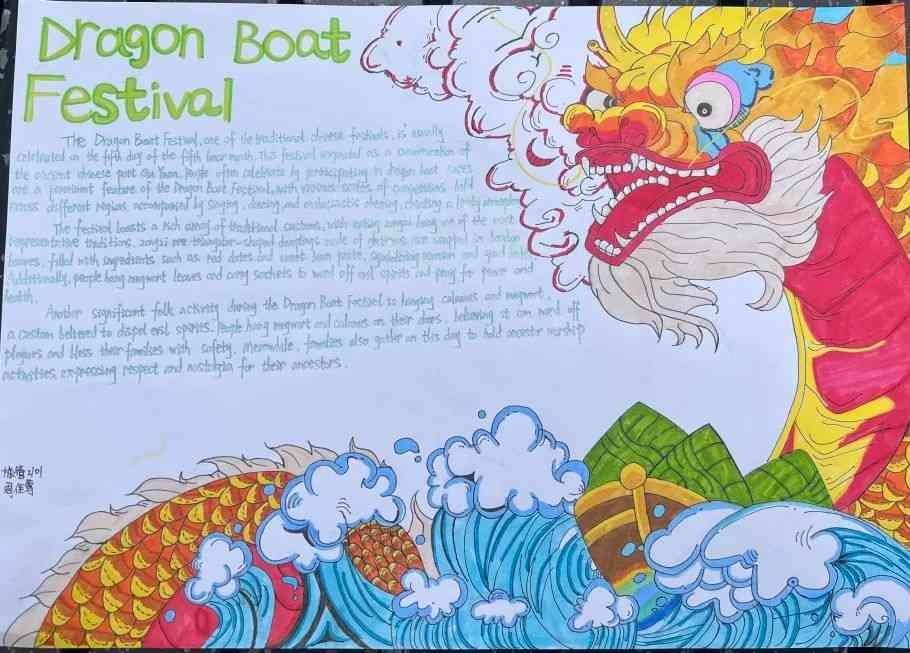 Dragon Boat
Festival
The Dragon Boat Festival, one of the traditional chinese festivals, is usually
celebrated on the fifth day of the fifth lunar month. This festival originated as a commemoration of
the ancient chinese poet Qu Yuan. People often celebrate by participating in dragon boat races
are a prominent feature of the Dragon Boat Festival, with various scales of competitions held
across different regions, accompanied by singing, dancing and enthusiastic cheering, creating a lively atmosphere
The festival boasts a rich array of traditional customs, with eating zongzi being one of the most
representative traditions. zongzi are triangular-shaped dumplings made of glutinous rice wrapped in bamboo
leaves, filled with ingredients such as red dates and sweet bean paste, symbolizing reunion and good
Additionally, people hang mugwort leaves and carry sachets to ward off evil spirits and pray for peace and
health.
Another significant folk activity during the Dragon Boat Festival is hanging calamus and mugwort,
a custom believed to dispel evil spirits. People hang mugwort and calamus on their doors, believing it can ward off
plagues and bless their families with safety. Meanwhile, families also gather on this day to hold ancestor worship
activities, expressing respect and nostalgia for their ancestors.
2101